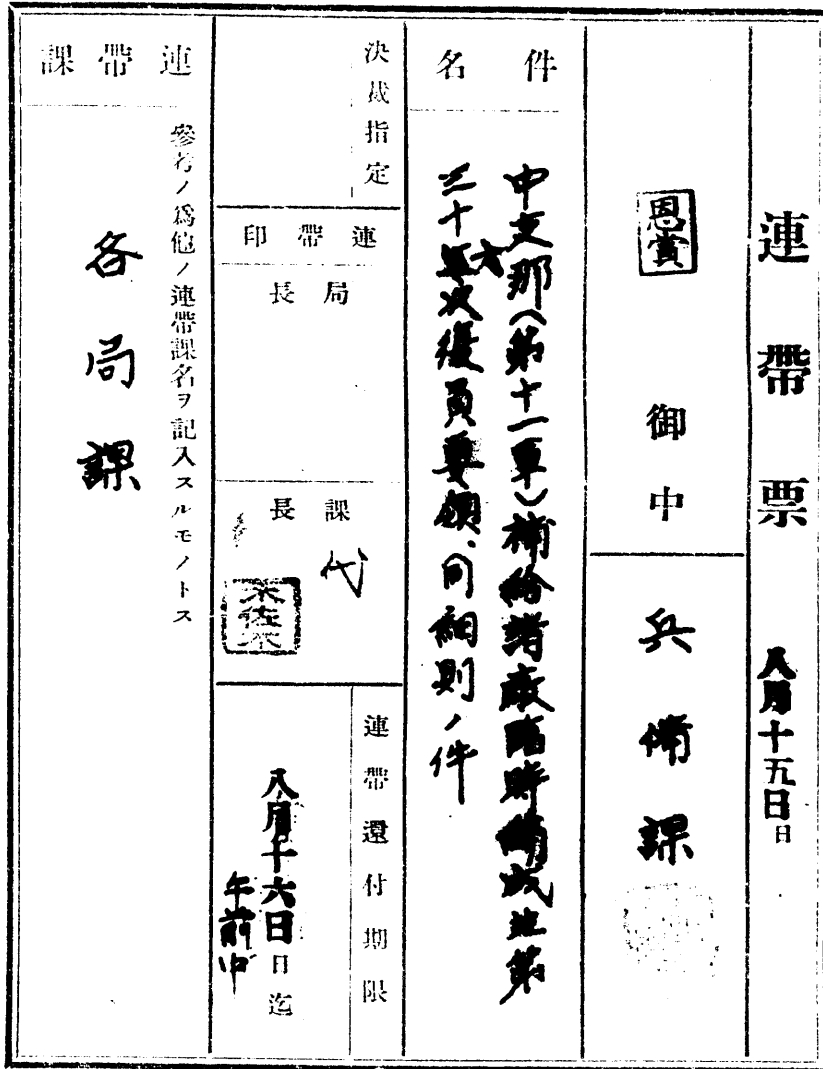 連帶票
八月十五日日
恩賞
御中
兵備課
件名
中支那(第十一軍)補給諸廠臨時編成並第
三十六次復員要領、同細則ノ件
決裁指定
連帶印
局長
課長
代
連帶還付期限
八月十六日日迄
午前中
連帶課
參考ノ爲他ノ連帶課名ヲ記入スルモノトス
各局課